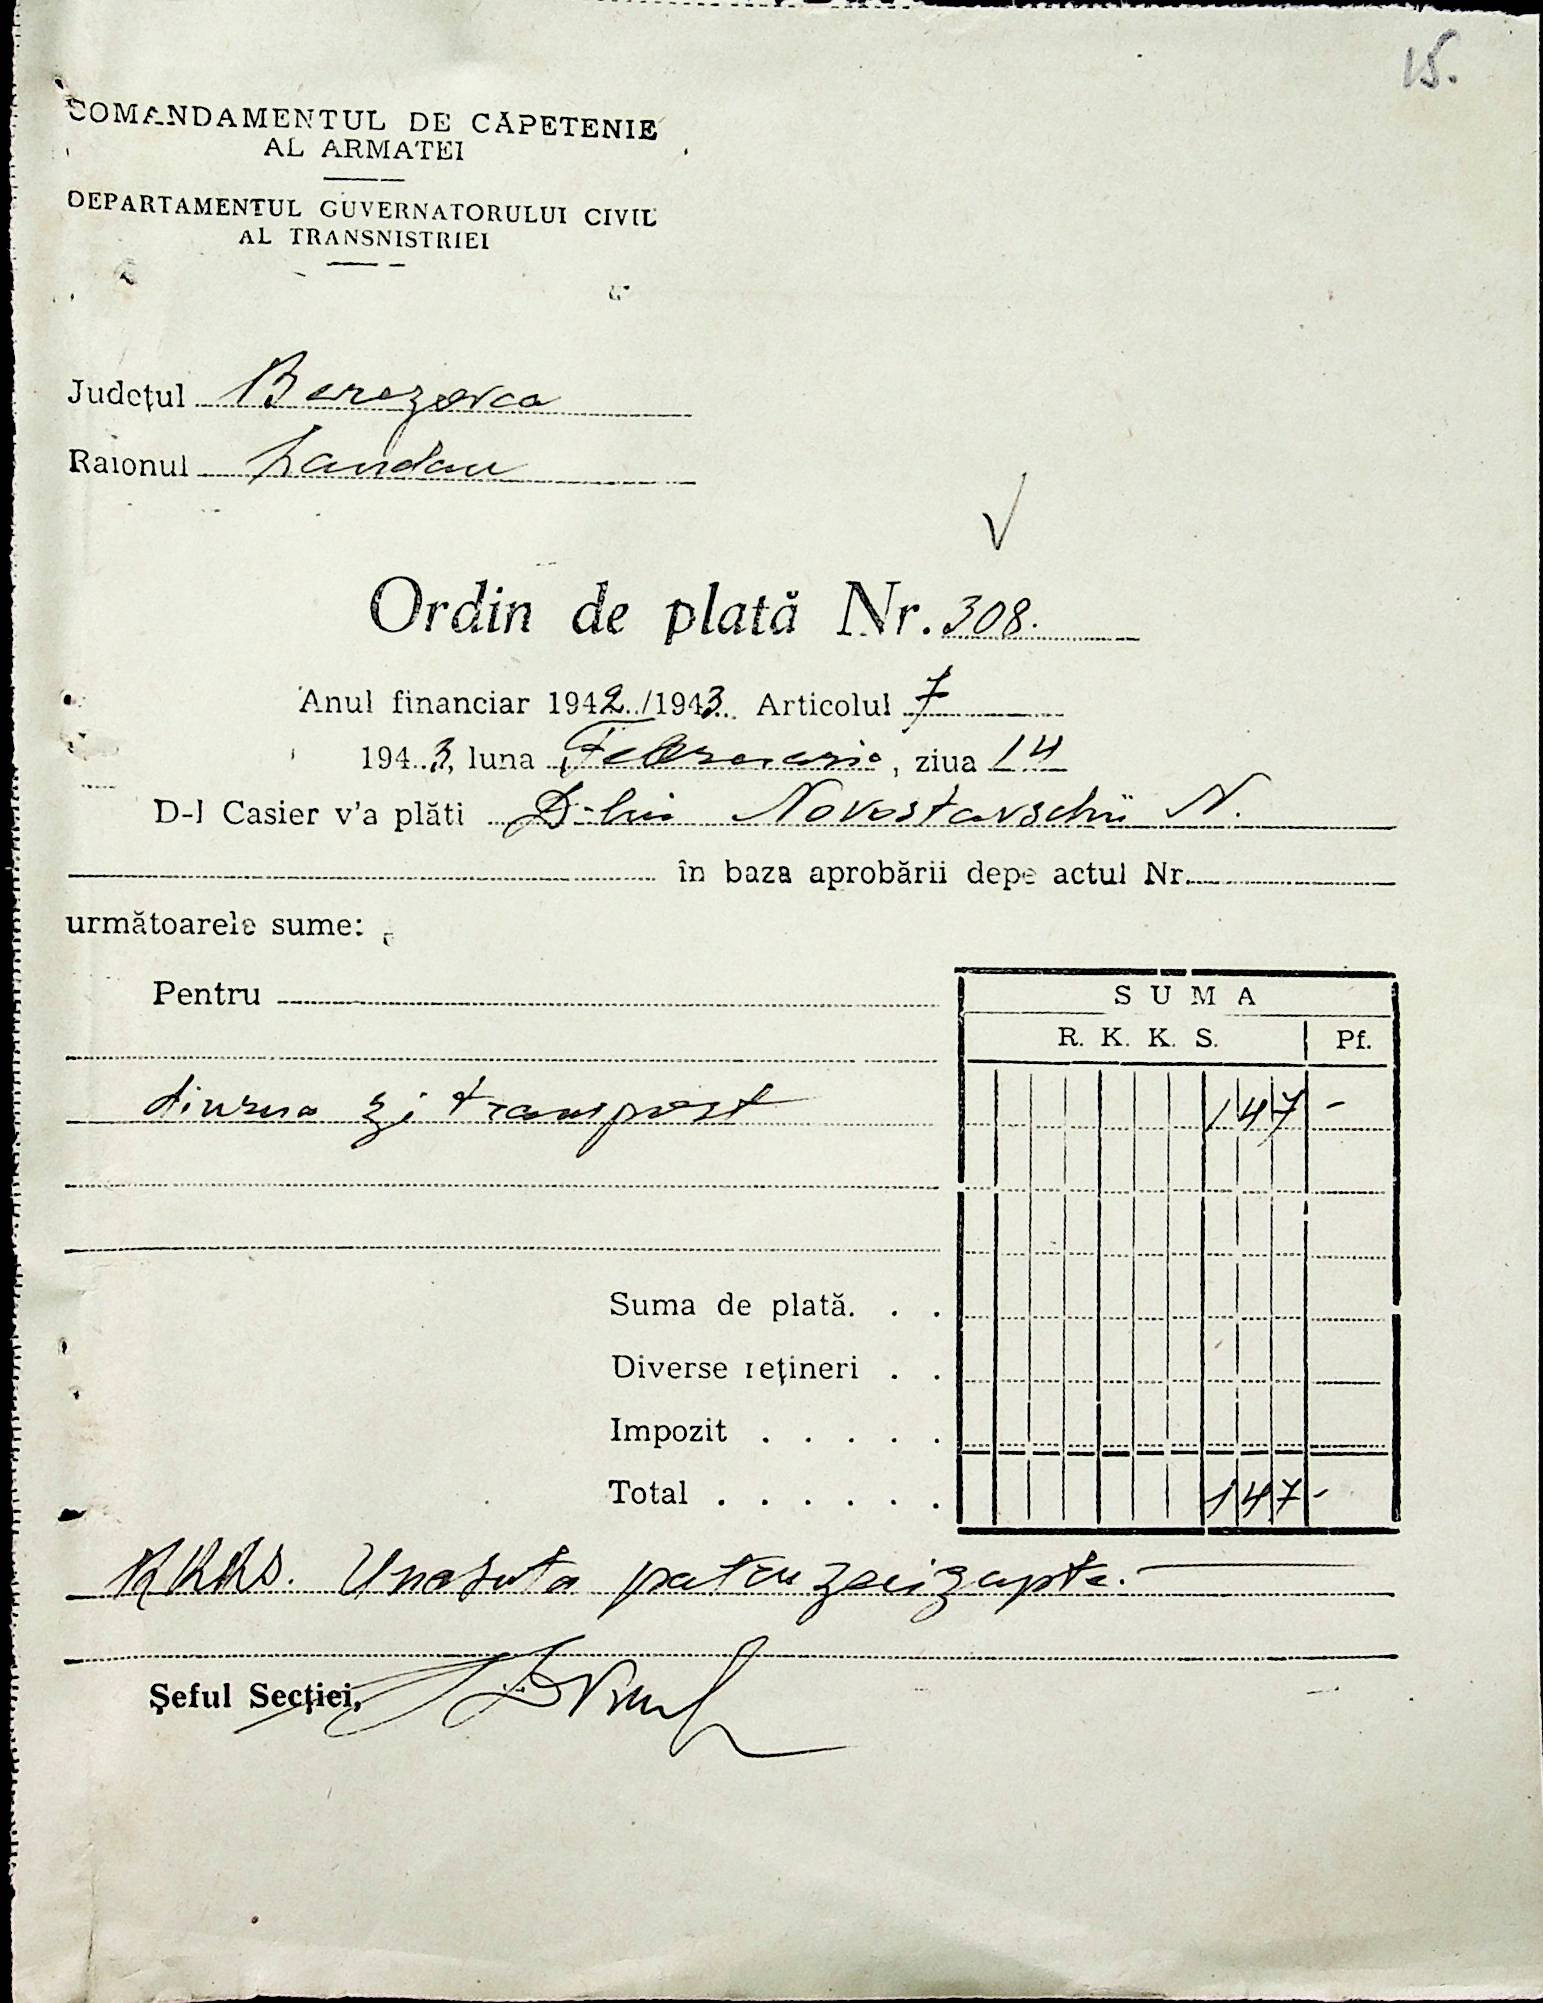 15.
COMANDAMENTUL DE CĂPETENIE
AL ARMATEI
DEPARTAMENTUL GUVERNATORULUI CIVIL
AL TRANSNISTRIEI
Județul Berezovca
Raionul Landau
Ordin de plată Nr. 308.
Anul financiar 1942/1943 Articolul 7
1943, luna Februarie, ziua 14
D-l Casier v'a plăti D-lui Novostavschii N.
în baza aprobării depe actul Nr.
următoarele sume:
Pentru
SUMA
R. K. K. S. Pf.
diurna și transport 147 -
Suma de plată. . .
Diverse rețineri . .
Impozit . . . . .
Total . . . . . . 147 -
RKKS. Unasuta patruzecișapte.
Șeful Secției,